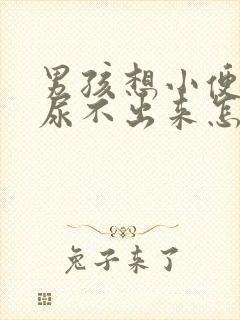 男孩想小便
尿不出来怎
兔子来了